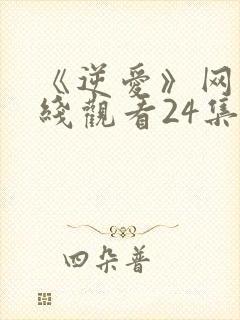 《逆爱》网
綫觀看24集
四朵普